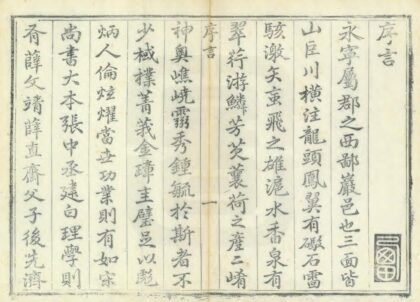 序言
永寧屬郡之西鄙巖邑也三面皆
山巨川橫注龍頭鳳翼有礮石雷
駭激矢䖟飛之雄滬水香泉有
翠荇游鱗芳芡蘘荷之產二崤
序言 一
神奧嶕嶢霛秀鍾毓於斯者不
少棫樸菁莪金璋圭璧足以彪
炳人倫炫燿當世功業則有如宋
尚書大本張中丞建白理學則
有薛文靖薛直齋父子後先濟